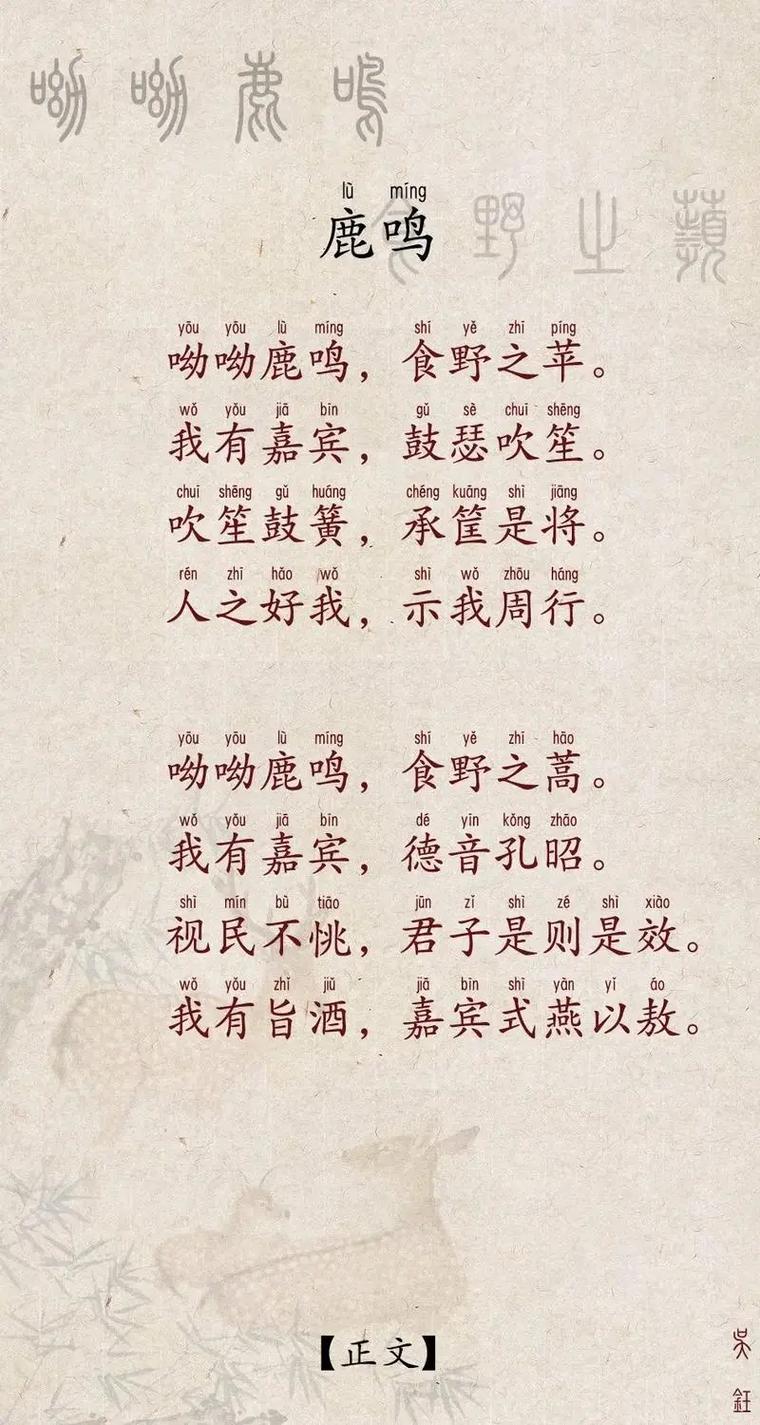 呦呦鹿鸣
食野之蘋
lù míng
鹿鸣
yōu yōu lù míng shí yě zhī píng
呦呦鹿鸣，食野之苹。
wǒ yǒu jiā bīn gǔ sè chuī shēng
我有嘉宾，鼓瑟吹笙。
chuī shēng gǔ huáng chéng kuāng shì jiāng
吹笙鼓簧，承筐是将。
rén zhī hǎo wǒ shì wǒ zhōu háng
人之好我，示我周行。
yōu yōu lù míng shí yě zhī hāo
呦呦鹿鸣，食野之蒿。
wǒ yǒu jiā bīn dé yīn kǒng zhāo
我有嘉宾，德音孔昭。
shì mín bù tiāo jūn zǐ shì zé shì xiào
视民不恌，君子是则是效。
wǒ yǒu zhǐ jiǔ jiā bīn shì yàn yǐ áo
我有旨酒，嘉宾式燕以敖。
【正文】
吴鈺